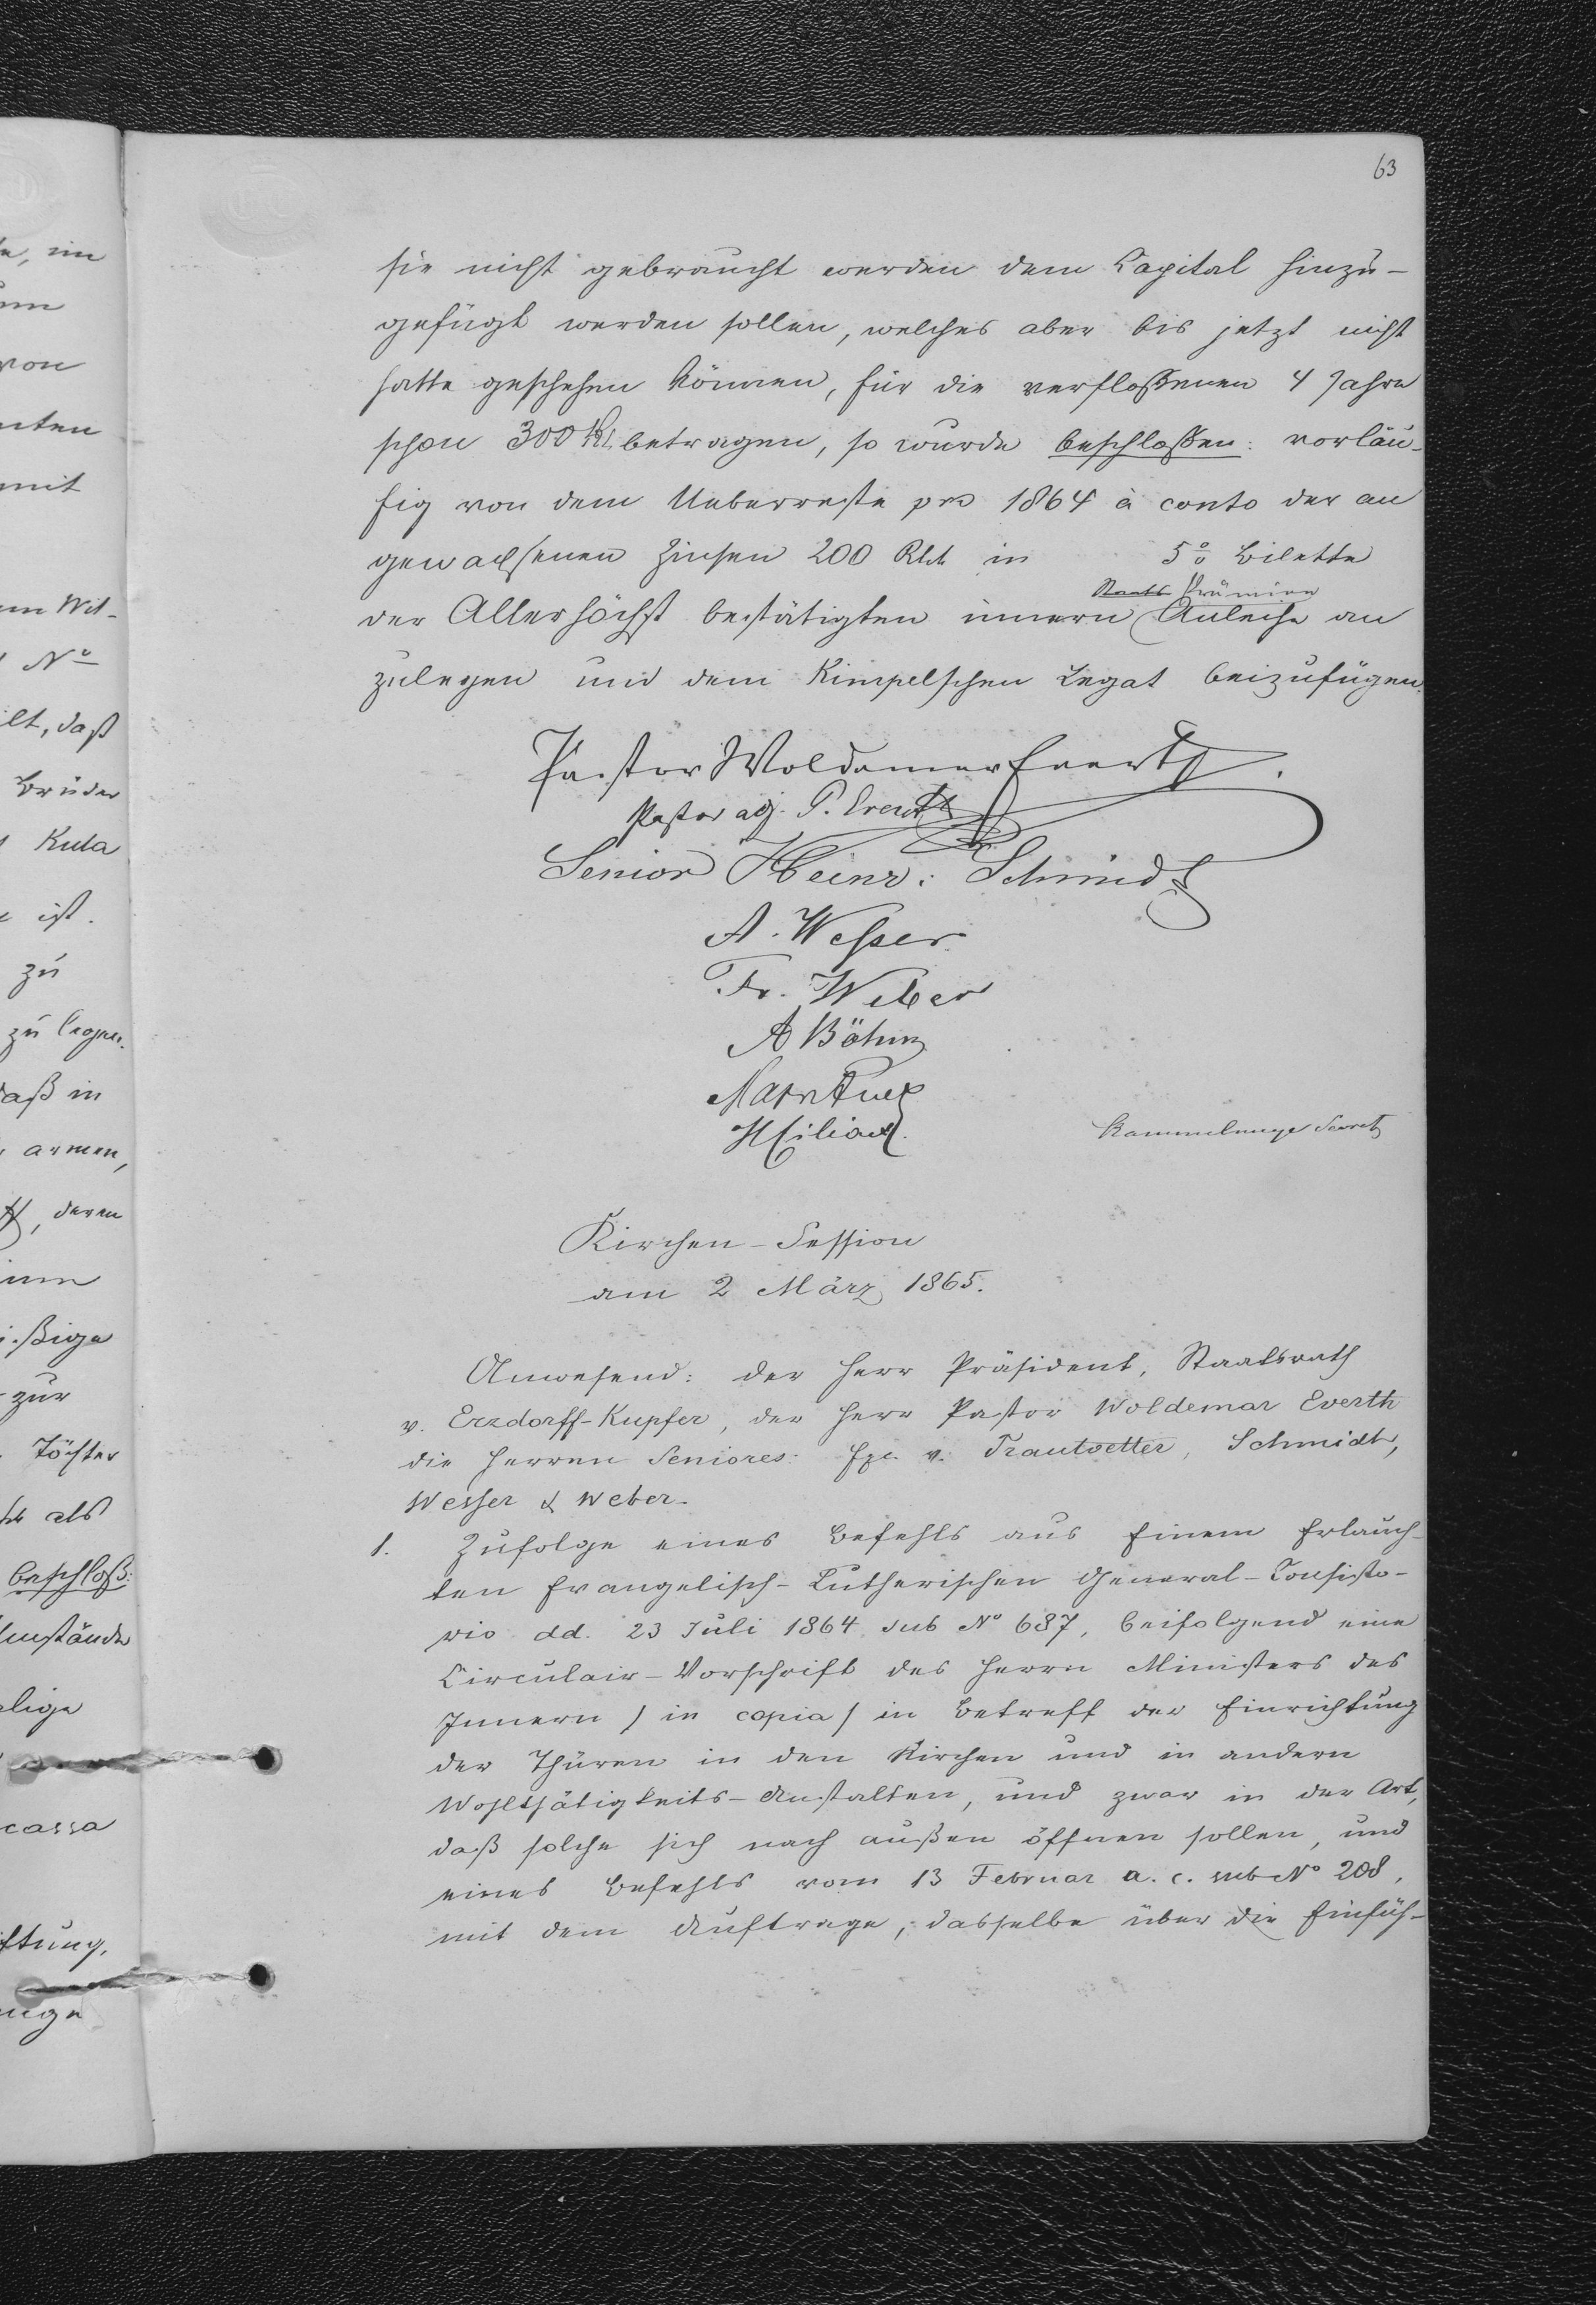 63
sie nicht gebraucht werden dem Capital hinzu-
gefügt werden sollen, welches aber bis jetzt nicht
hatte geschehen können, für die verfloßenen 4 Jahre
schon 300 Rl. betragen, so wurde beschloßen: vorläu-
fig von dem Ueberreste pro 1864 à conto der an
gewachsenen Zinsen 200 Rbl. in 5% Billette
Staats Prämien
der Allerhöchst bestätigten innern Anleihe an
zulegen und dem Kimpelschen Legat beizufügen.
Pastor Woldemar Everth.
Pastor adj. P. Everth
Senior Heinr: Schmidt
A. Wesser
Fr. Weber
A Böhm
Kirchen-Session
am 2 März 1865.
Anwesend: der Herr Präsident, Staatsrath
v. Erzdorff-Kupfer, der Herr Pastor Woldemar Everth
die Herren Seniores: v. Trautvetter, Schmidt,
Wesser & Weber.
1. Zufolge eines Befehls aus Einem Erlauch-
ten Evangelisch-Lutherischen General-Consisto-
rio dd. 23 Juli 1864 sub No 687, beifolgend eine
Circulair-Vorschrift des Herrn Ministers des
Innern / in copia / in Betreff der Einrichtung
der Thüren in den Kirchen und in andern
Wohlthätigkeits-Anstalten, und zwar in der Art,
daß solche sich nach außen öffnen sollen, und
eines Befehls vom 13 Februar a. c. sub No 208,
mit dem Auftrage, dasselbe über die Einfüh-